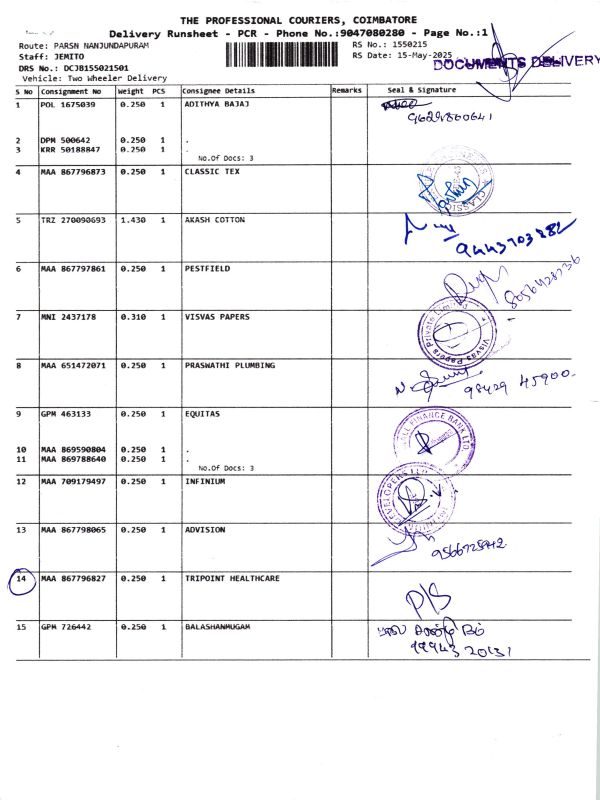 THE PROFESSIONAL COURIERS, COIMBATORE
Delivery Runsheet - PCR - Phone No.:9047080280 - Page No.:1
Route: PARSN NANJUNDAPURAM RS No.: 1550215
Staff: JEMITO RS Date: 15-May-2025
DOCUMENTS DELIVERY
DRS No.: DCJB155021501
Vehicle: Two Wheeler Delivery
S No Consignment No Weight PCS Consignee Details Remarks Seal & Signature
1 POL 1675039 0.250 1 ADITHYA BAJAJ
9629800641
2 DPM 500642 0.250 1 .
3 KRR 50188847 0.250 1 .
No.Of Docs: 3
4 MAA 867796873 0.250 1 CLASSIC TEX
CLASSIC
5 TRZ 270090693 1.430 1 AKASH COTTON
9443703882
6 MAA 867797861 0.250 1 PESTFIELD
8056428236
7 MNI 2437178 0.310 1 VISVAS PAPERS
Visvas Papers Private Limited
8 MAA 651472071 0.250 1 PRASWATHI PLUMBING
98429 45900
9 GPM 463133 0.250 1 EQUITAS
FINANCE BANK LTD
10 MAA 869590804 0.250 1 .
11 MAA 869788640 0.250 1 .
No.Of Docs: 3
12 MAA 709179497 0.250 1 INFINIUM
DEVELOPERS
13 MAA 867798065 0.250 1 ADVISION
9566725942
14 MAA 867796827 0.250 1 TRIPOINT HEALTHCARE
P/S
15 GPM 726442 0.250 1 BALASHANMUGAM
99943 20131